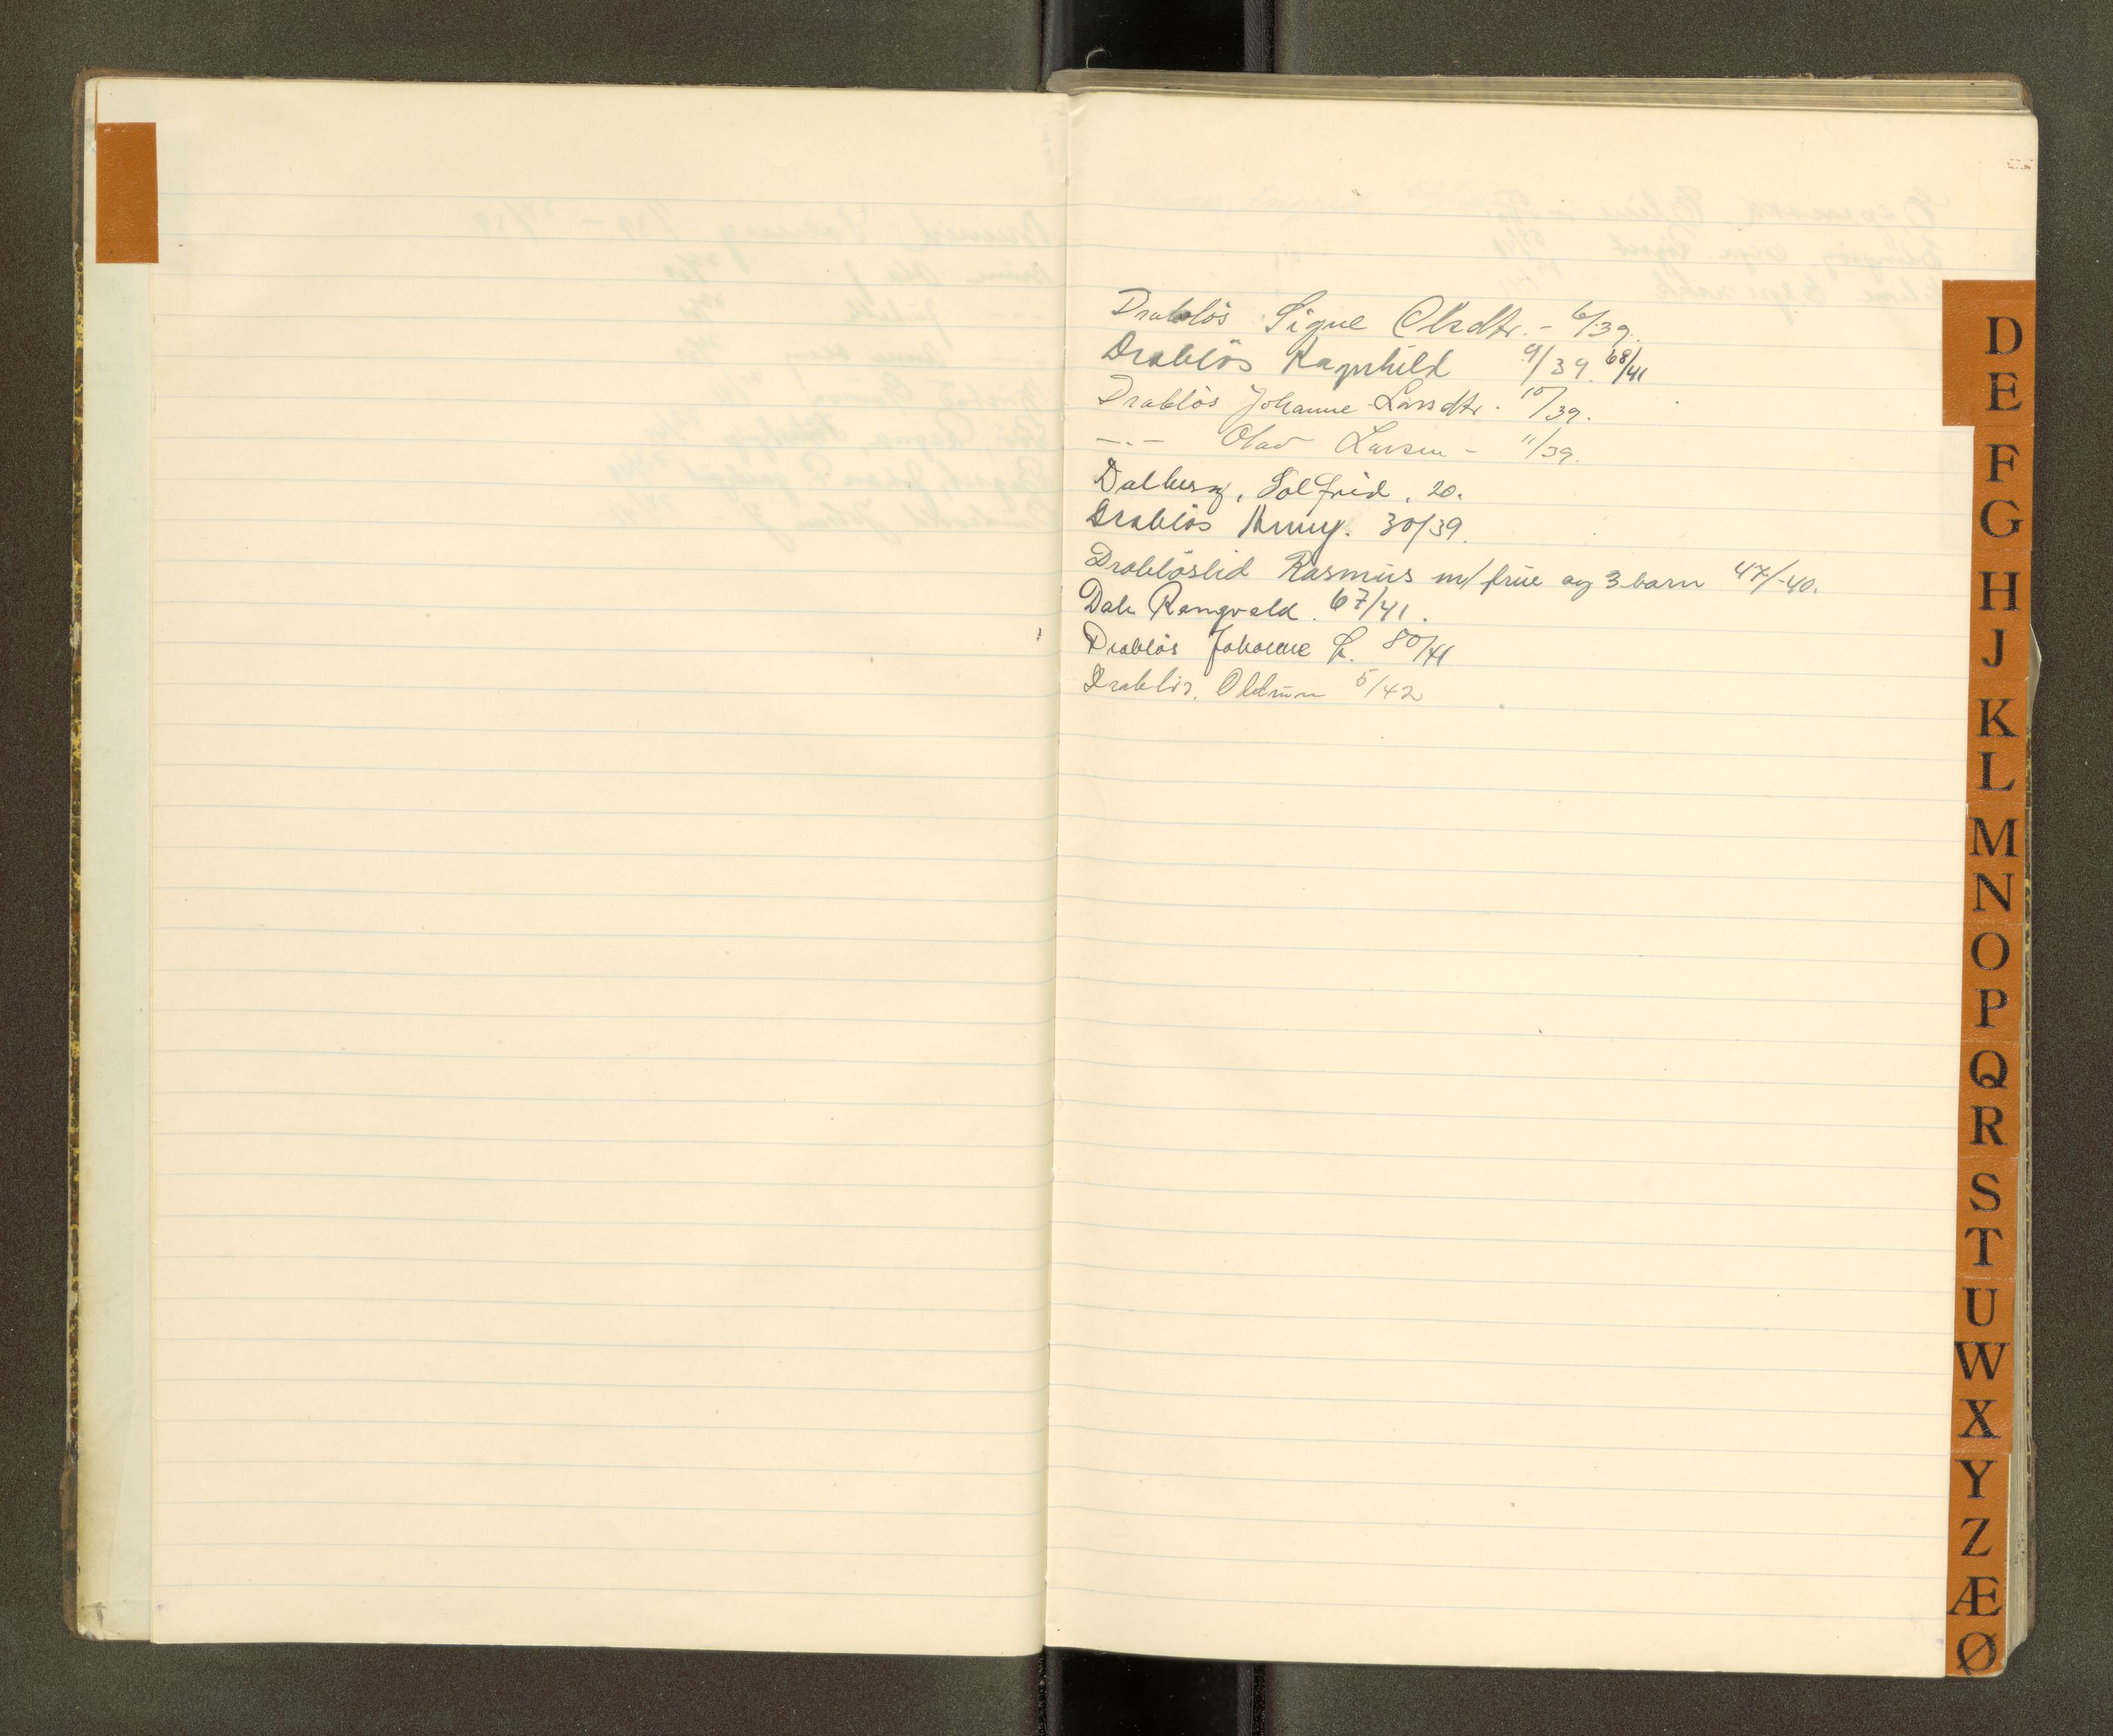 Drabløs Signe Olsdtr. - 6/39.
Drabløs Ragnhild 9/39. 68/41
Drabløs Johanne Larsdtr. 10/39.
—„— Olav Larsen - 11/39.
Dalberg, Solfrid. 20.
Drabløs Anny. 30/39.
Drabløslid Rasmus m/ frue og 3 barn 47/-40.
Dale Rangvald. 67/41.
Drabløs Johanne L. 80/41
Drabløs, Oddrun 5/42
D
E
F
G
H
J
K
L
M
N
O
P
Q
R
S
T
U
W
X
Y
Z
Æ
Ø